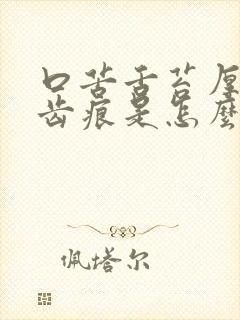 口苦舌苔厚
齿痕是怎麽
佩塔尔